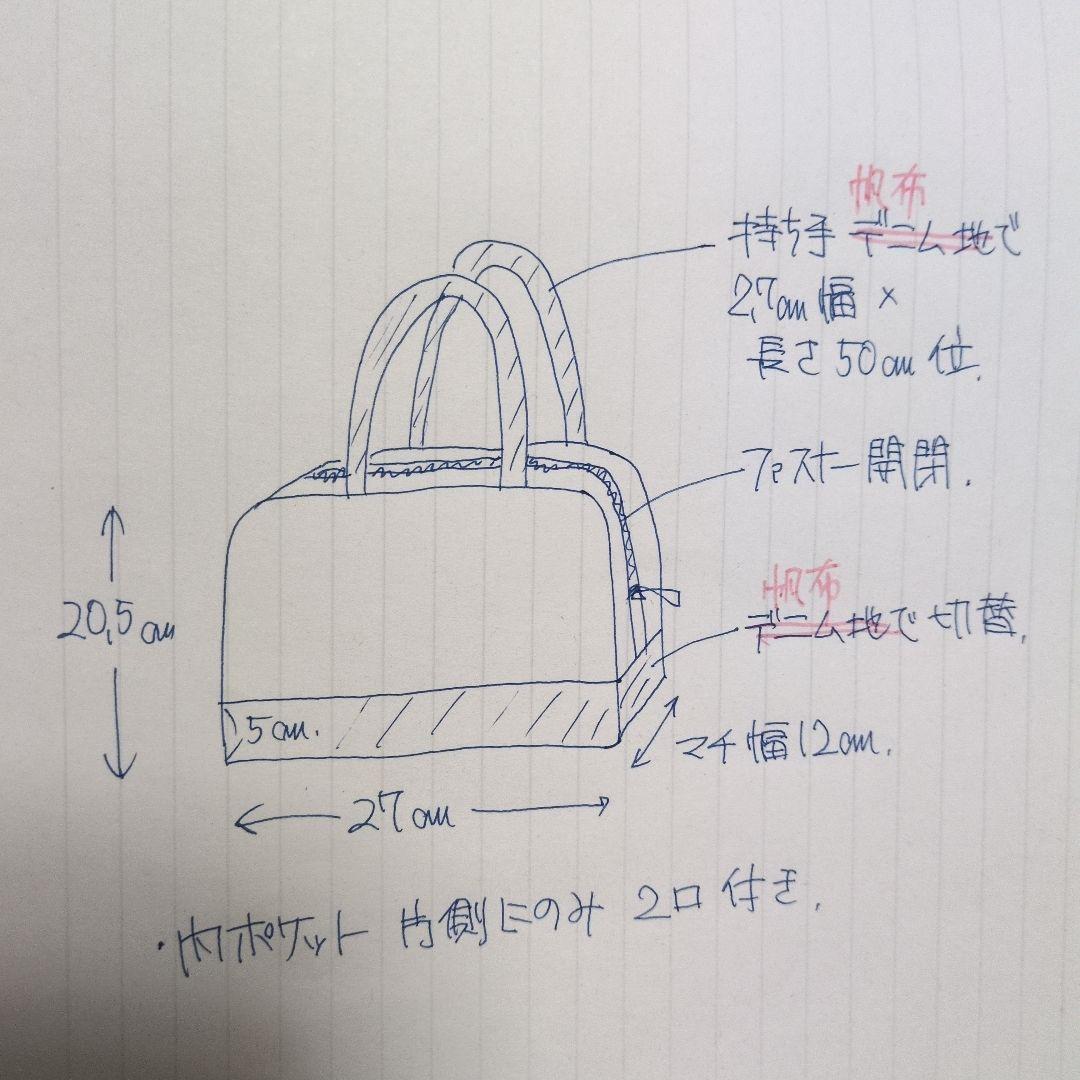 帆布
持ち手 デニム地で
2.7cm幅 ×
長さ50cm位.
ファスナー開閉.
帆布
デニム地で切替.
20.5cm
5cm.
マチ幅12cm.
27cm
・内ポケット 片側にのみ 2口付き.